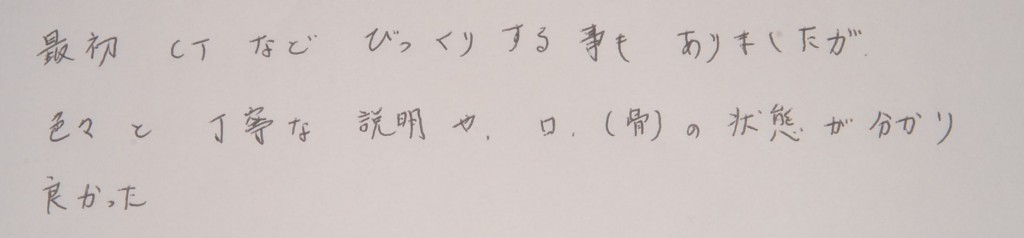 最初 CTなど びっくりする事も ありましたが.
色々と 丁寧な 説明や. 口.(骨)の 状態が分かり
良かった